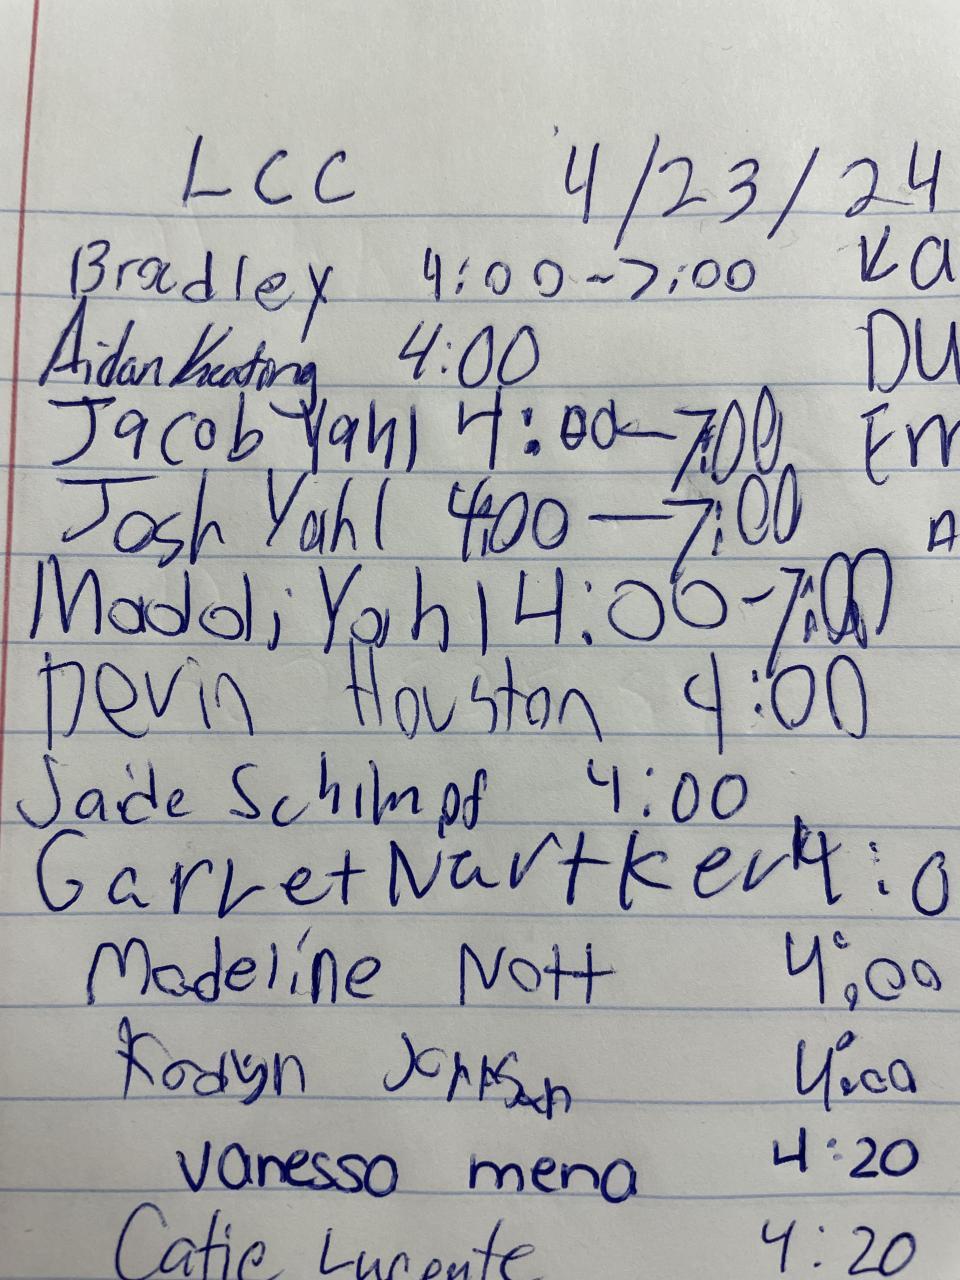 LCC 4/23/24
Bradley 4:00-7:00 Ka
Aidan Keating 4:00 DU
Jacob Yahl 4:00-7:00 Em
Josh Yahl 4:00-7:00 A
Maddi Yahl 4:00-7:00
Devin Houston 4:00
Jade Schimpf 4:00
Garret Nartker 4:0
Madeline Nott 4:00
4:00
vanessa mena 4:20
Catie Lucente 4:20